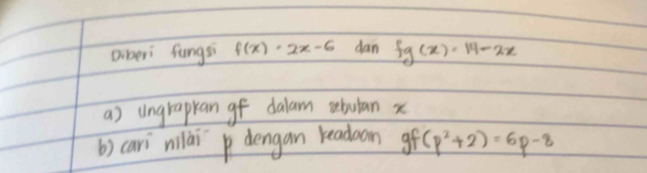 Diberi fungsi f(x) = 2x - 6 dan fg(x) = 14 - 2x
a) Ungkapkan gf dalam sebutan x
b) cari nilai p dengan keadaan gf(p²+2) = 6p - 8